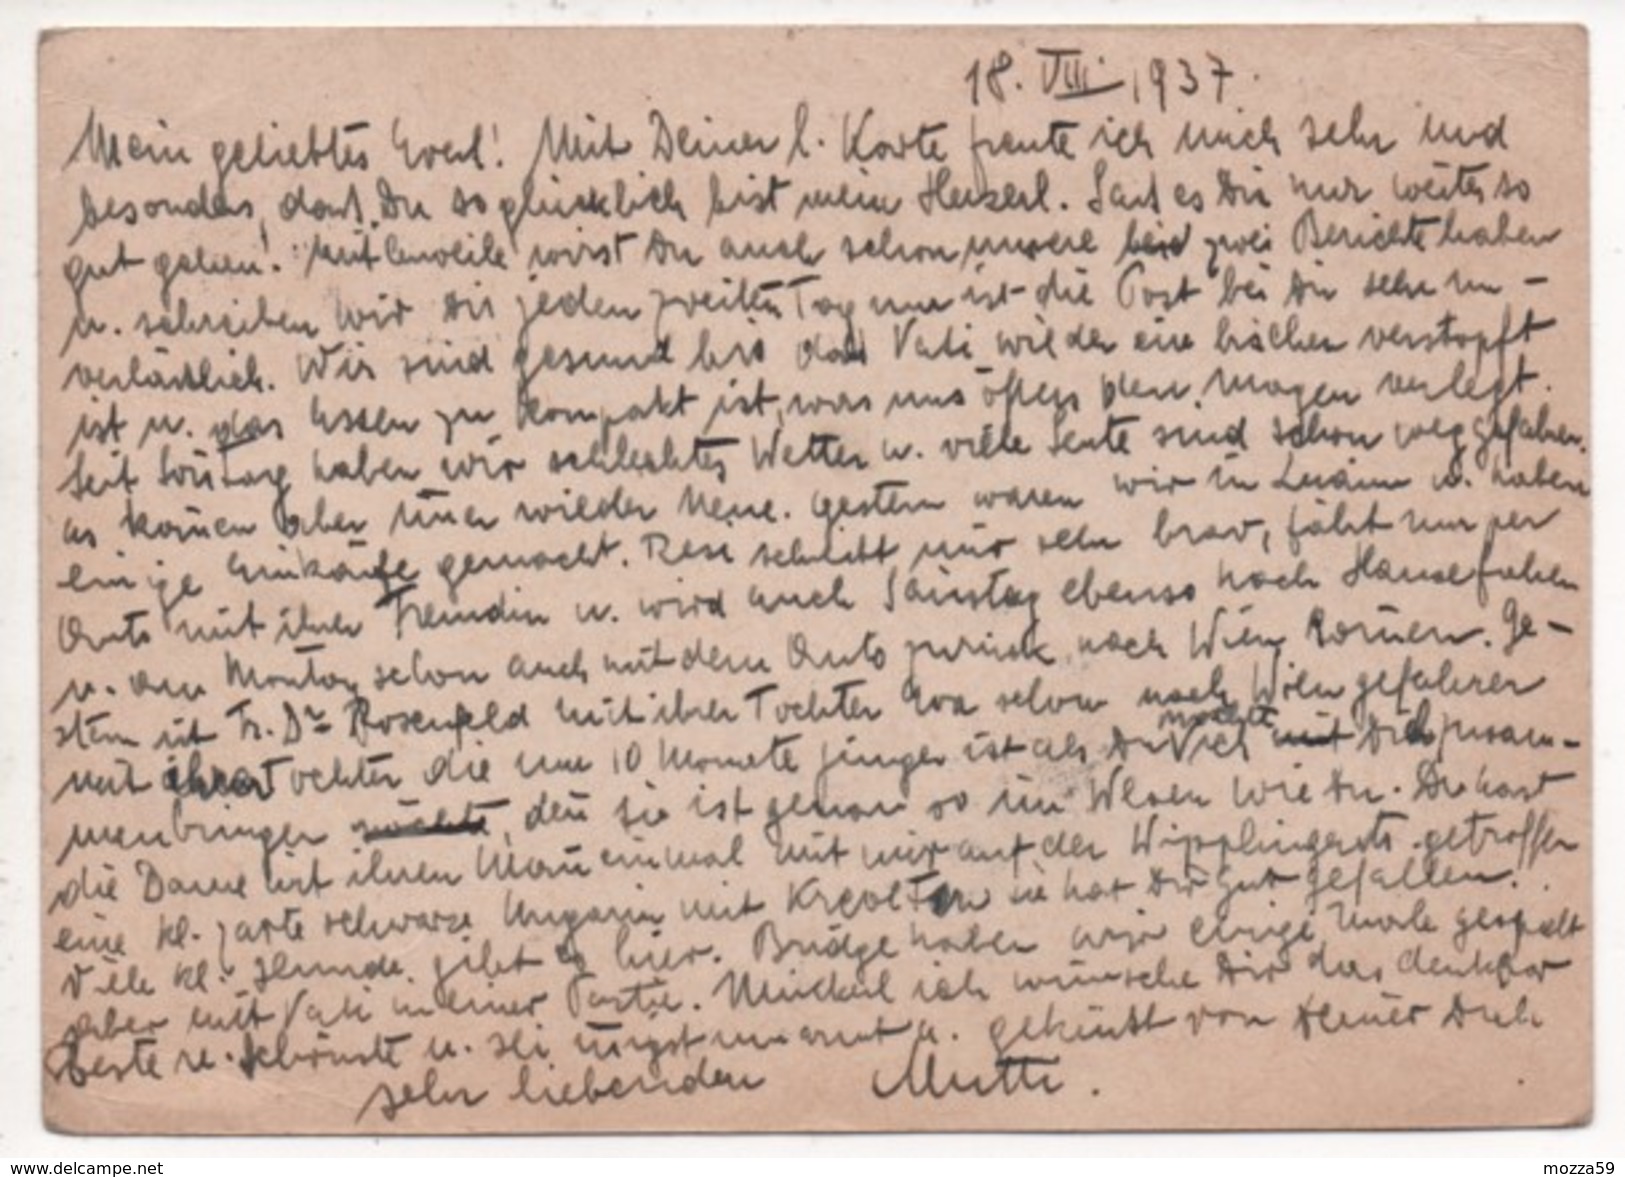 18. VIII. 1937.
Mein geliebtes Everl! Mit Deiner l. Karte freute ich mich sehr und
besonders, das Du so glücklich bist mein Herzerl. Last es Dir nur weiter so
gut gehen! Mittlerweile wirst Du auch schon unsere zwei Berichte haben
u. schreiben wir Dir jeden zweiten Tag nur ist die Post bei Dir sehr un-
verlässlich. Wir sind gesund bis das Vati wieder ein bischen verstopft
ist u. das Essen zu kompakt ist, was uns öfters den Magen verlegt.
Seit Sontag haben wir schlechtes Wetter u. viele Leute sind schon weggefahren.
es komen aber imer wieder Neue. Gestern waren wir in u. haben
einige Einkäufe gemacht. Resi schreibt mir sehr brav, fährt nur per
Auto mit ihrer Freundin u. wird auch Samstag ebenso nach Hause fahren
u. am Montag schon auch mit dem Auto zurück nach Wien komen. Ge-
stern ist Fr. Dr Rosenfeld mit ihrer Tochter Eva schon nach Wien gefahren
mit ihrer Tochter die um 10 Monate jünger ist als Du möchte ich Dich zusam-
menbringen, den sie ist genau so im Wesen wie Du. Du hast
die Dame mit ihren Man einmal mit mir auf der Wipplingerstr. getroffen
eine kl. zarte schwarze Ungarin mit sie hat Dir gut gefallen.
Viele kl. Hunde gibt es hier. Bridge haben wir einige Male gespielt
aber mit Vati in einer Partie. Muckerl ich wünsche Dir das denkbar
beste u. Schönste u. sei inigst umarmt u. geküsst von Deiner Dich
sehr liebenden Mutti.
www.delcampe.net
mozza59